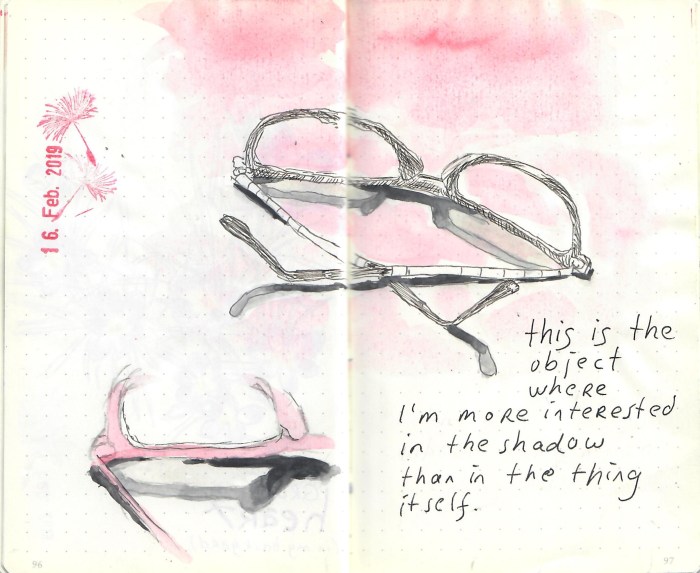 16. Feb. 2019
this is the
object
where
I'm more interested
in the shadow
than in the thing
itself.
96
97